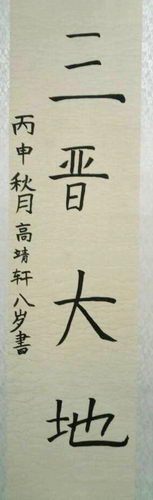 三晋大地
丙申秋月高靖轩八岁書